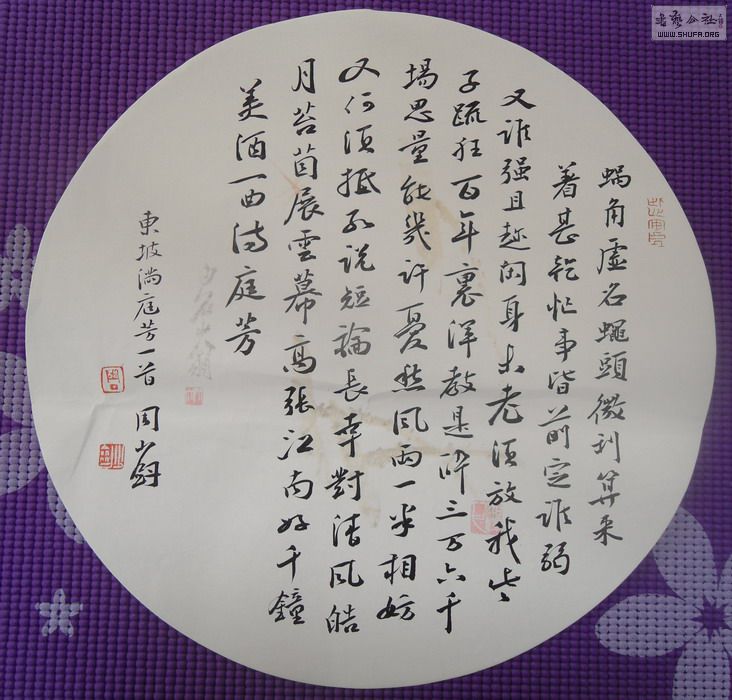 蝸角虛名蠅頭微利算来
着甚乾忙事皆前定誰弱
又誰强且趂闲身未老須放我些
子疏狂百年裏渾教是醉三万六千
場思量能幾許憂愁風雨一半相妨
又何須抵死説短論長幸對清風皓
月苔茵展雲幕高張江南好千鐘
美酒一曲满庭芳
東坡满庭芳一首 周
书艺公社
WWW.SHUFA.ORG